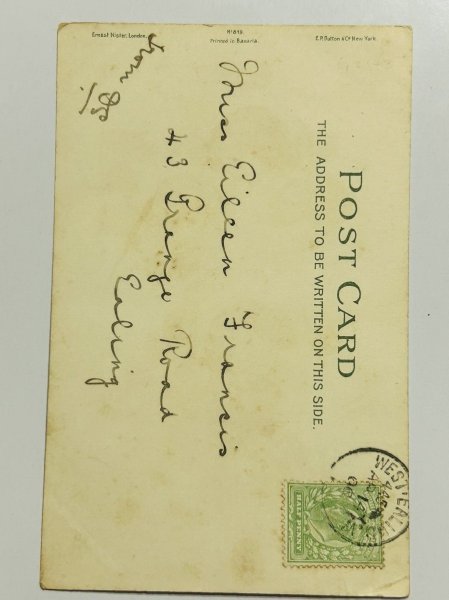 POST CARD
THE ADDRESS TO BE WRITTEN ON THIS SIDE.
Miss Eileen Francis
43 Grange Road
Ealing
from
Ernest Nister, London.
Printed in Bavaria.
E.P. Dutton & Co New York.
HALF PENNY
WEST EALING